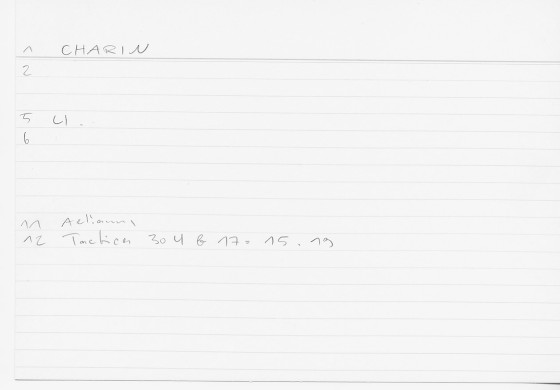 1 CHARIN
2
5 LI.
6
11 Aelianus
12 Tactica 304 B 17. 15. 19